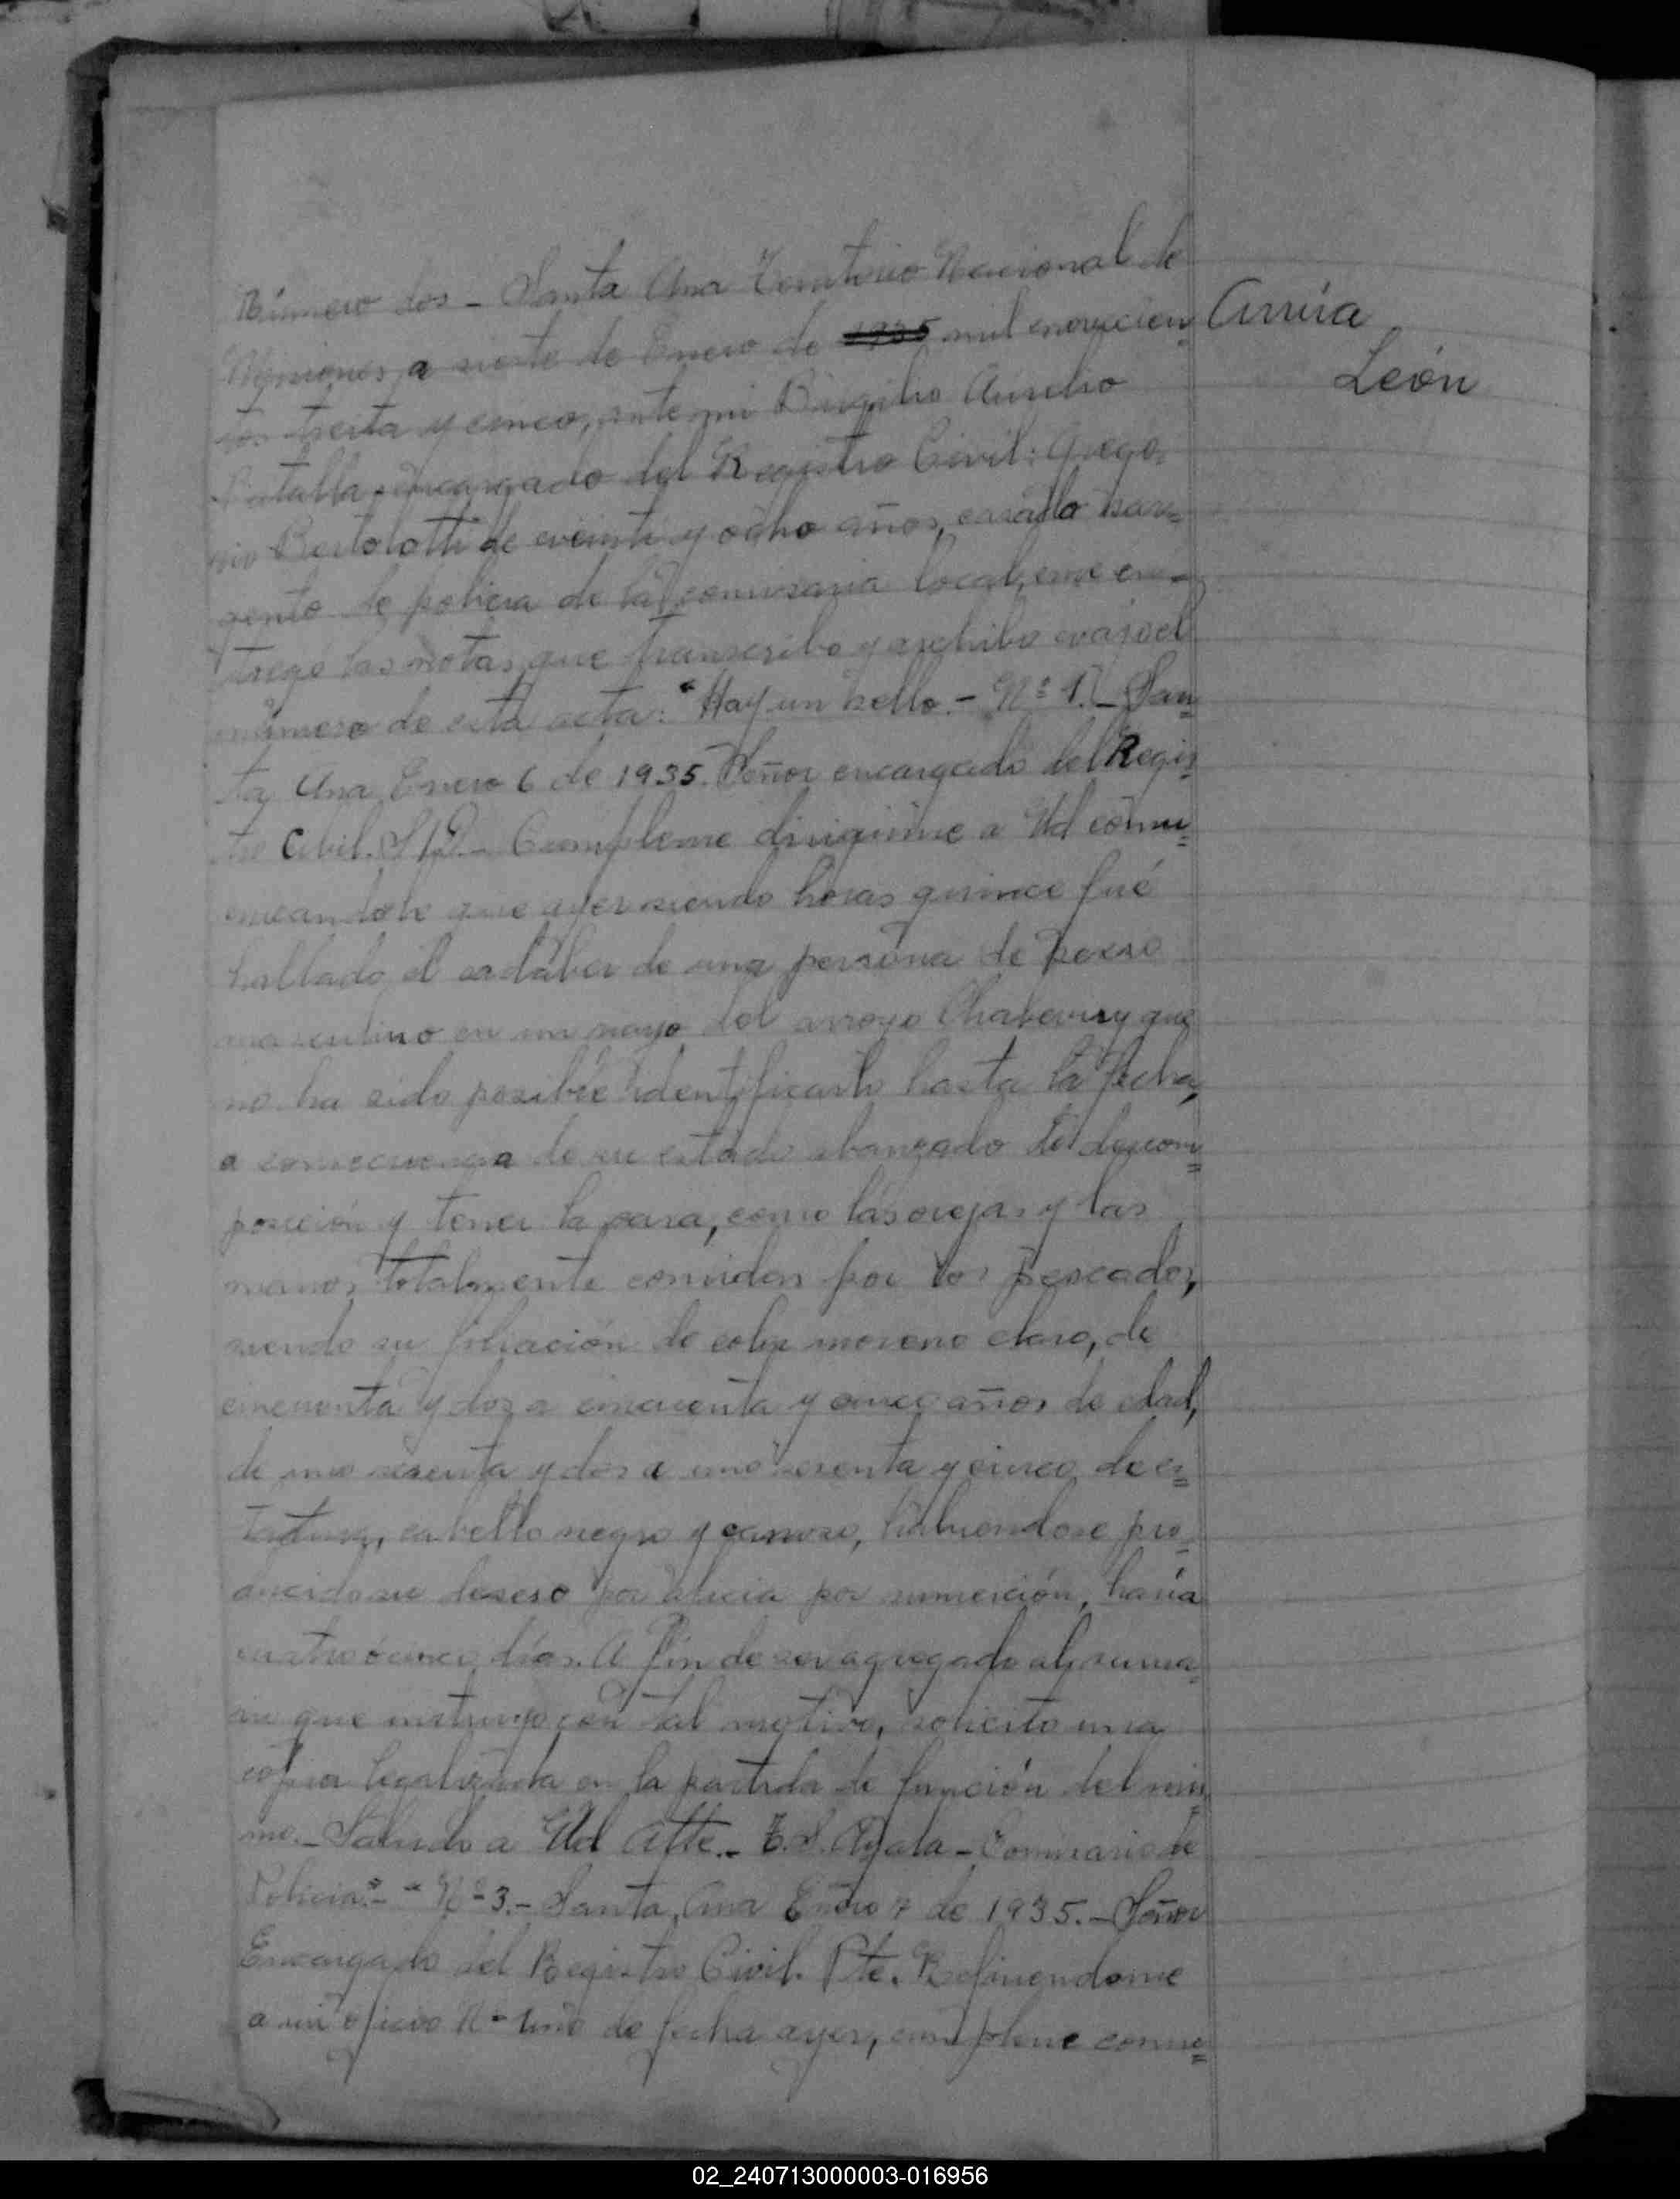 Número dos - Santa Ana Territorio Nacional de
Misiones, a siete de Enero de 1935 mil novecien=
tos treita y cinco, ante mi Birgilio Aurelio
encargado del Registro Civil: Grego=
rio Bertolotti de veinte y ocho años, casado sar=
gento de policia de la comisaria local, me en=
tregó las notas que transcribo y archibo vajo el
número de esta acta: "Hay un sello.- Nº 1.- San=
ta Ana Enero 6 de 1935. Señor encargado del Regis=
tro Cibil. S/D.- Cumpleme dirigirme a Ud comu=
nicandole que ayer siendo horas quince fué
hallado el cadáber de una persona de sexo
masculino en un rayo del arroyo Chabeviry que
no ha sido posible identificarlo hasta la fecha,
a consecuencia de su estado abanzado de descom=
posición y tener la cara, como las orejas y las
manos totalmente comidas por los pescados,
siendo su filiación de color moreno claro, de
cincuenta y dos a cincuenta y cinco años de edad,
de uno sesenta y dos a uno sesenta y cinco de es=
tatura, cabello negro y canoso, habiendose pro=
ducido su deseso por por inmerción, haría
cuatro ó cinco días. A fin de ser agregado al suma=
rio que instruyo con tal motivo, solicito una
copia legalizada en la partida de función del mis=
mo.- Saludo a Ud Atte.- E. S. Ayala - Comisario de
Policia."- "Nº 3.- Santa Ana Enero 7 de 1935.- Señor
Encargado del Registro Civil. Pte. Refiriendome
a mi oficio Nº uno de fecha ayer, cumpleme comu=
Arrúa
León
02_240713000003-016956